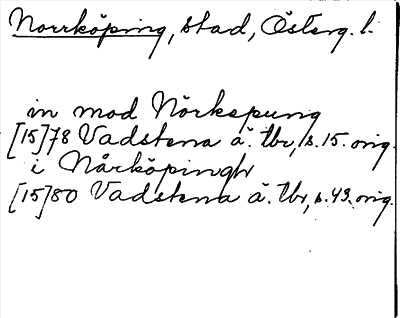 Norrköping, stad, Österg. l.
in mod Nörkepung
[15]78 Vadstena ä. tbr, s. 15. orig.
i Nårköpingh
[15]80 Vadstena ä. tbr, s. 49. orig.